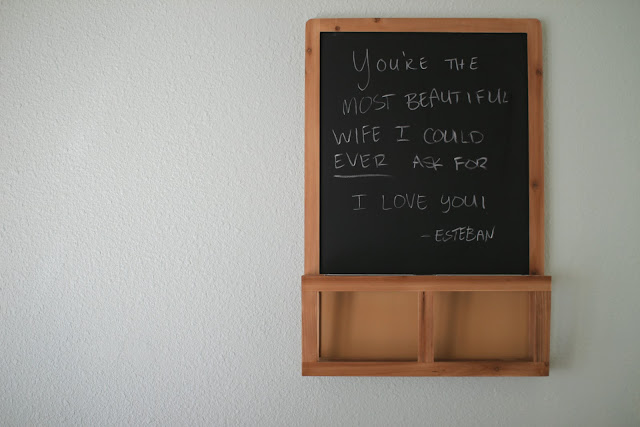 You're THE
MOST BEAUTIFUL
WIFE I COULD
EVER ASK FOR
I LOVE YOU!
- ESTEBAN